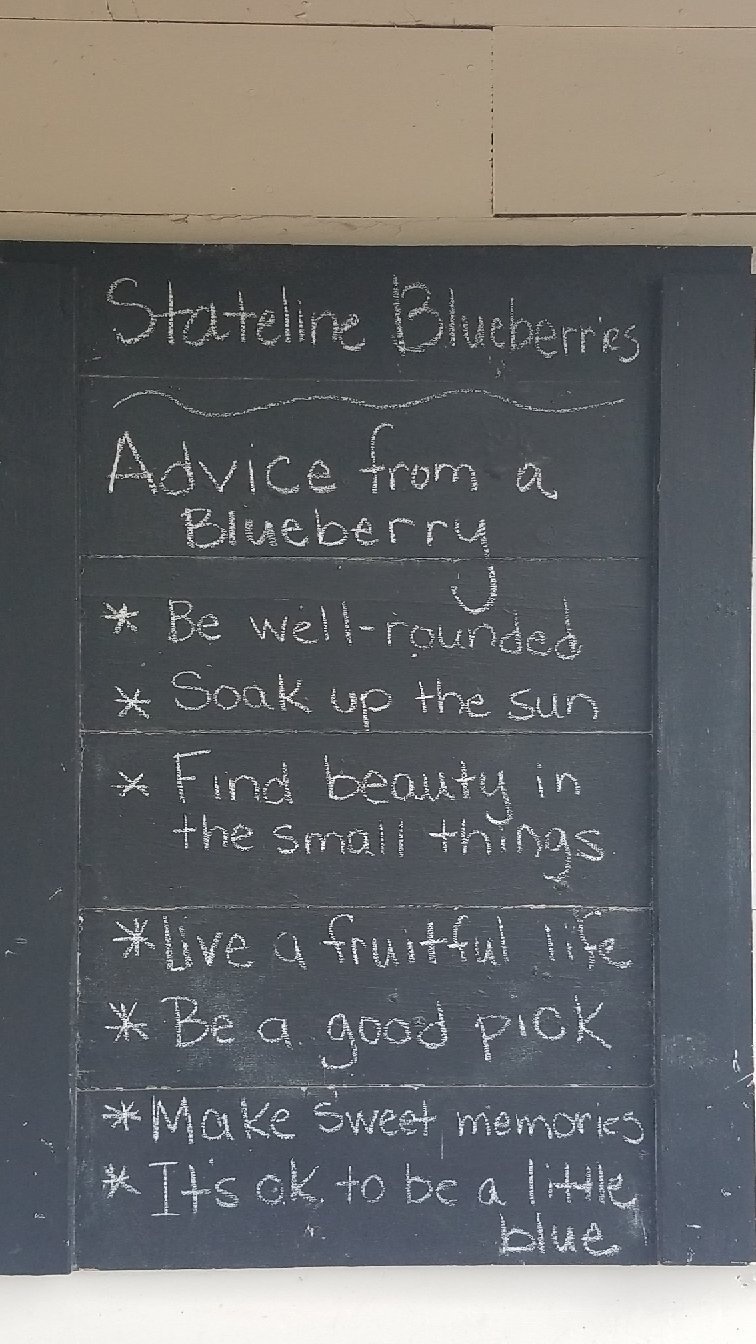 Stateline Blueberries
Advice from a
Blueberry
* Be well-rounded
* Soak up the sun
* Find beauty in
the small things
* Live a fruitful life
* Be a good pick
* Make sweet memories
* It's ok to be a little
blue